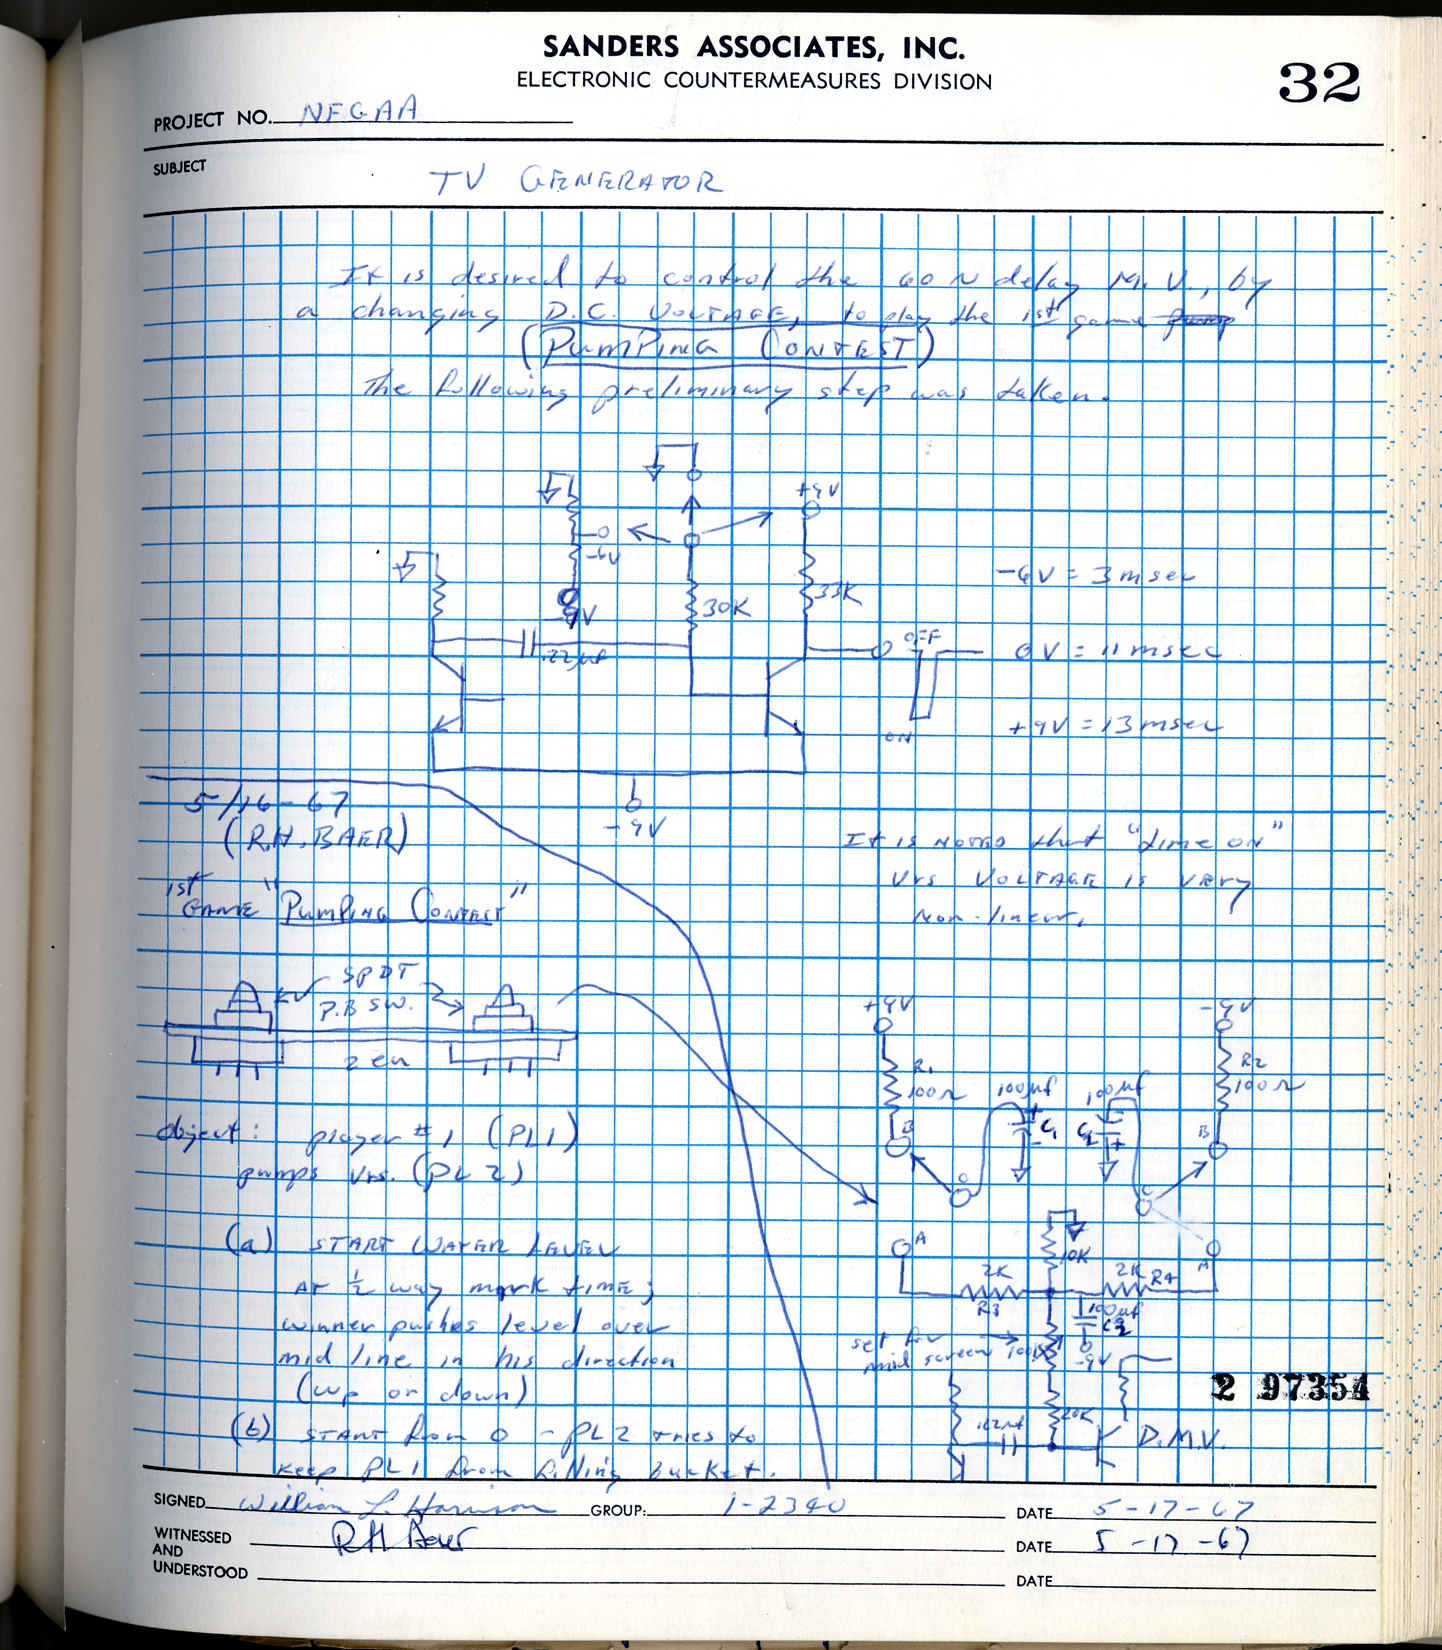 SANDERS ASSOCIATES, INC.
ELECTRONIC COUNTERMEASURES DIVISION
32
PROJECT NO. NEGAA
SUBJECT
TV GENERATOR
It is desired to control the 60 N delay M.V., by
a changing D.C. VOLTAGE, to play the 1st game pump
(PUMPING CONTEST)
The following preliminary step was taken.
+9V
-6V
-9V
30K
33K
.22µf
OFF
ON
-9V
-6V = 3 msec
0V = 11 msec
+9V = 13 msec
5/16-67
(R.H. BAER)
It is NOTED that "time on"
Vrs VOLTAGE is very
Non-linear.
1st GAME "PUMPING CONTEST"
SPDT
P.B SW.
2 ea
object: player #1 (PL1)
pumps Vrs. (PL2)
(a) START WATER LEVEL
AT 1/2 way mark time;
winner pushes level over
mid line in his direction
(up or down)
(b) START from 0 - PL2 tries to
keep PL1 from filling bucket.
+9V
-9V
R1
100Ω
R2
100Ω
100µf
100µf
C1
C2
B
B
C
C
A
A
10K
2K
R3
2K R4
100µf
set for
mid screen
100K
-9V
20K
D.M.V.
2 97354
SIGNED William L. Harrison GROUP: 1-2340 DATE 5-17-67
WITNESSED AND UNDERSTOOD RH Baer DATE 5-17-67
DATE